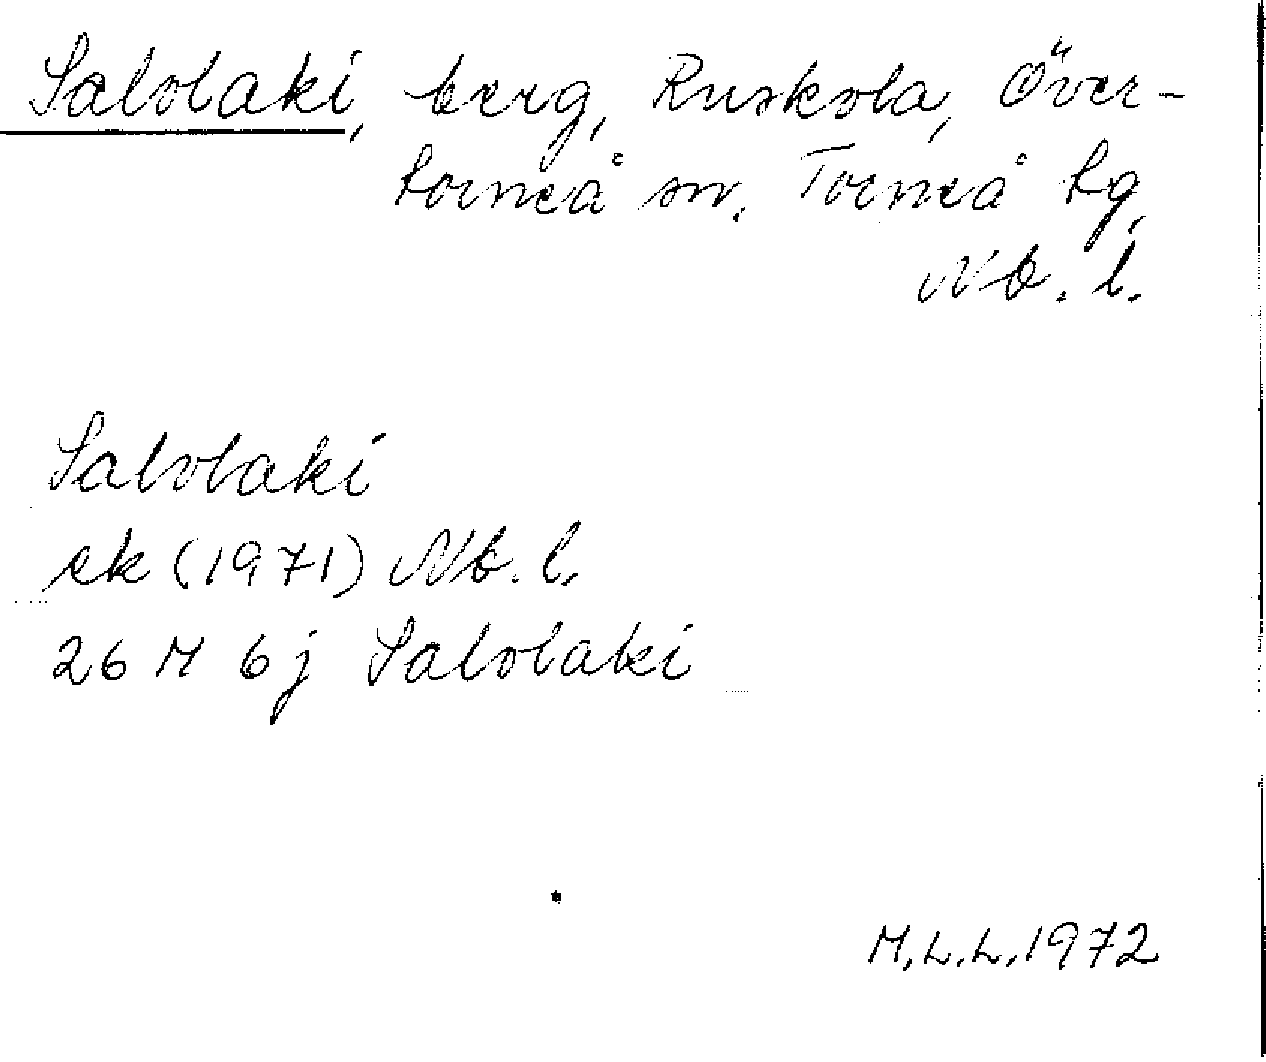 Salolaki, berg, Ruskola, Över-
torneå sn. Torneå tg,
Nb. l.
Salolaki
ek (1971) Nb. l.
26 M 6j Salolaki
M.L.L. 1972